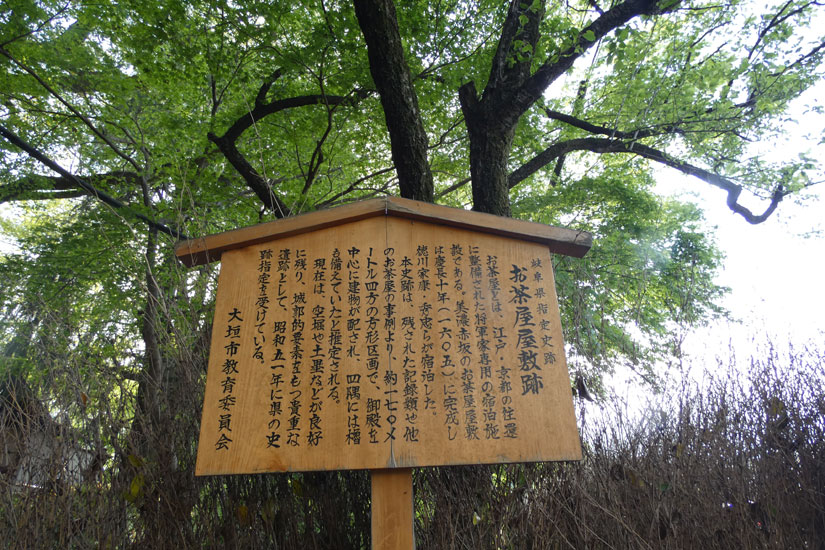 岐阜県指定史跡
お茶屋屋敷跡
お茶屋とは、江戸・京都の往還
に整備された将軍家専用の宿泊施
設である。美濃赤坂のお茶屋屋敷
は慶長十年(一六〇五)に完成し
徳川家康・秀忠らが宿泊した。
本史跡は、残された記録類や他
のお茶屋の事例より、約一七〇メ
ートル四方の方形区画で、御殿を
中心に建物が配され、四隅には櫓
を備えていたと推定される。
現在は、空堀や土塁などが良好
に残り、城郭的要素をもつ貴重な
遺跡として、昭和五一年に県の史
跡指定を受けている。
大垣市教育委員会